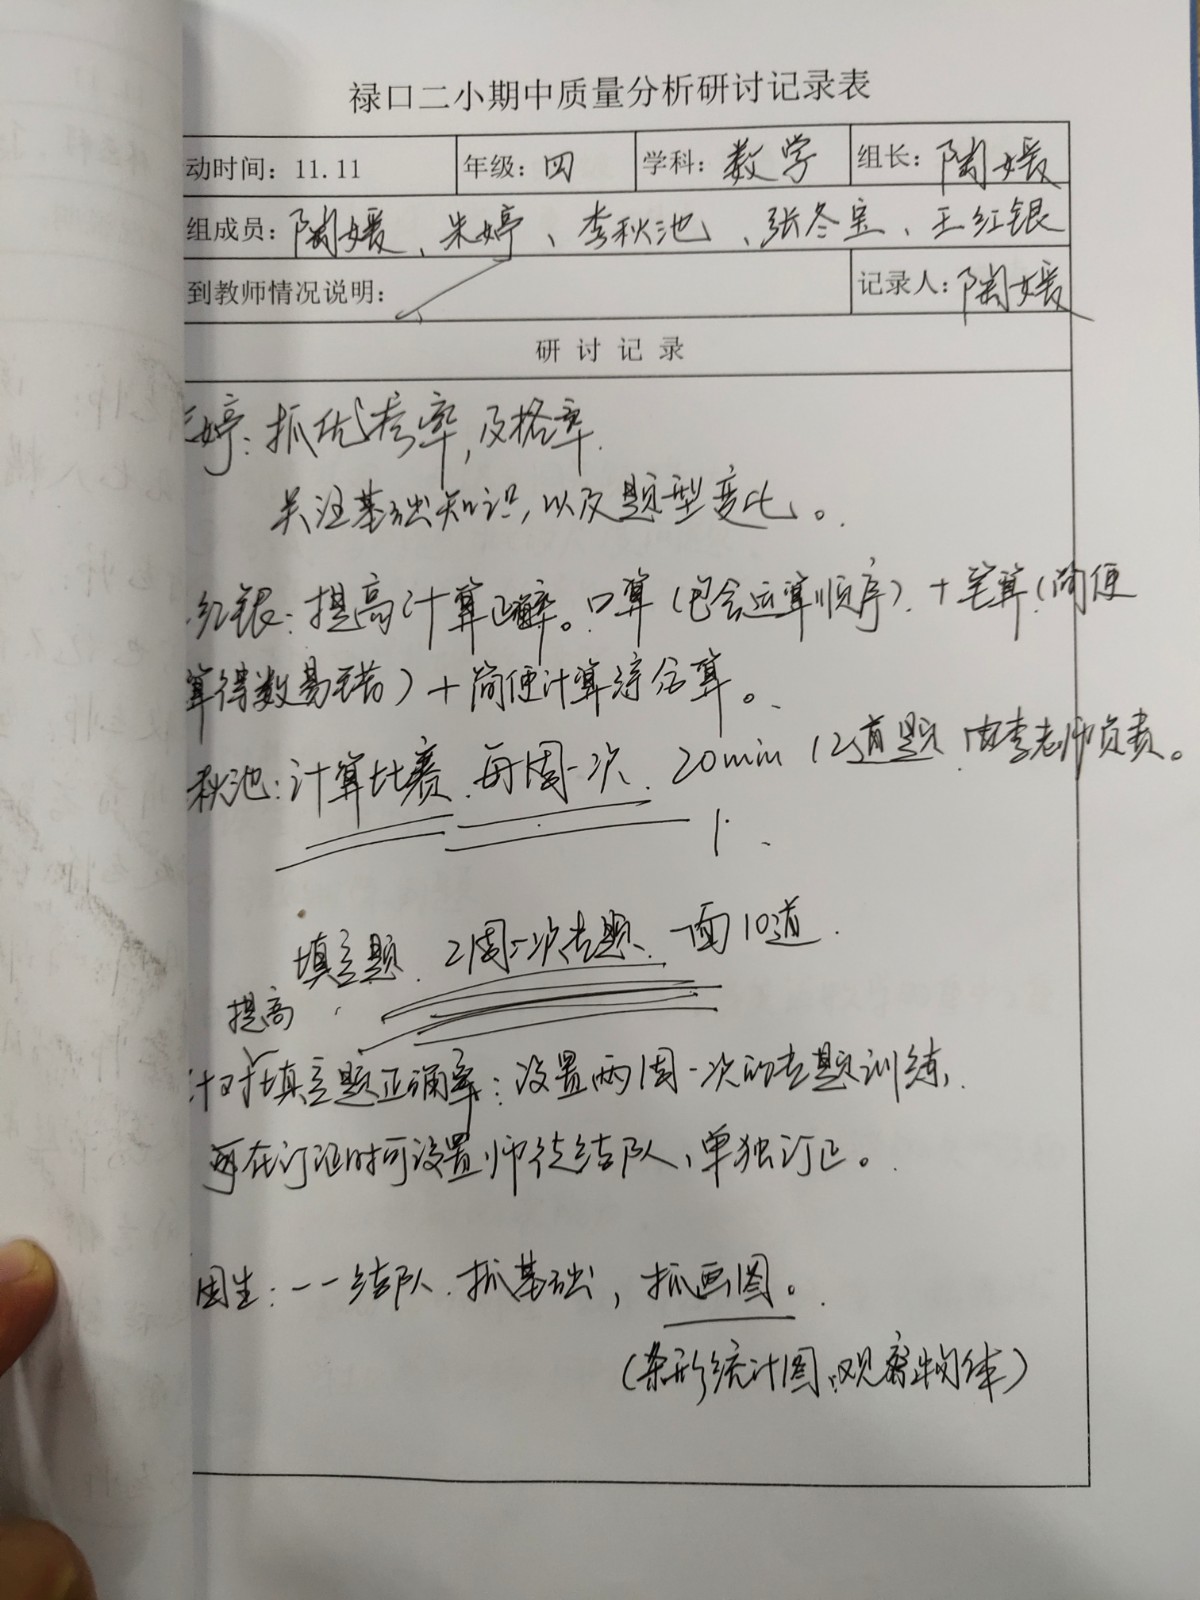 禄口二小期中质量分析研讨记录表
动时间：11.11 年级：四 学科：数学 组长：陶媛
组成员：陶媛、朱婷、李秋池、张冬宝、王红银
到教师情况说明： 记录人：陶媛
研讨记录
婷：抓优秀率，及格率.
关注基础知识，以及题型变化。
红银：提高计算正确率。口算（包含运算顺序）+笔算（简便
算得数易错）+简便计算综合算。
秋池：计算比赛.每周一次. 20min 12道题.由李老师负责。
填空题. 2周一次专题. 一面10道.
提高
针对填空题正确率：设置两周一次的专题训练.
可在订正时可设置师徒结队，单独订正。
困生：一一结队.抓基础，抓画图。
（条形统计图、观察物体）